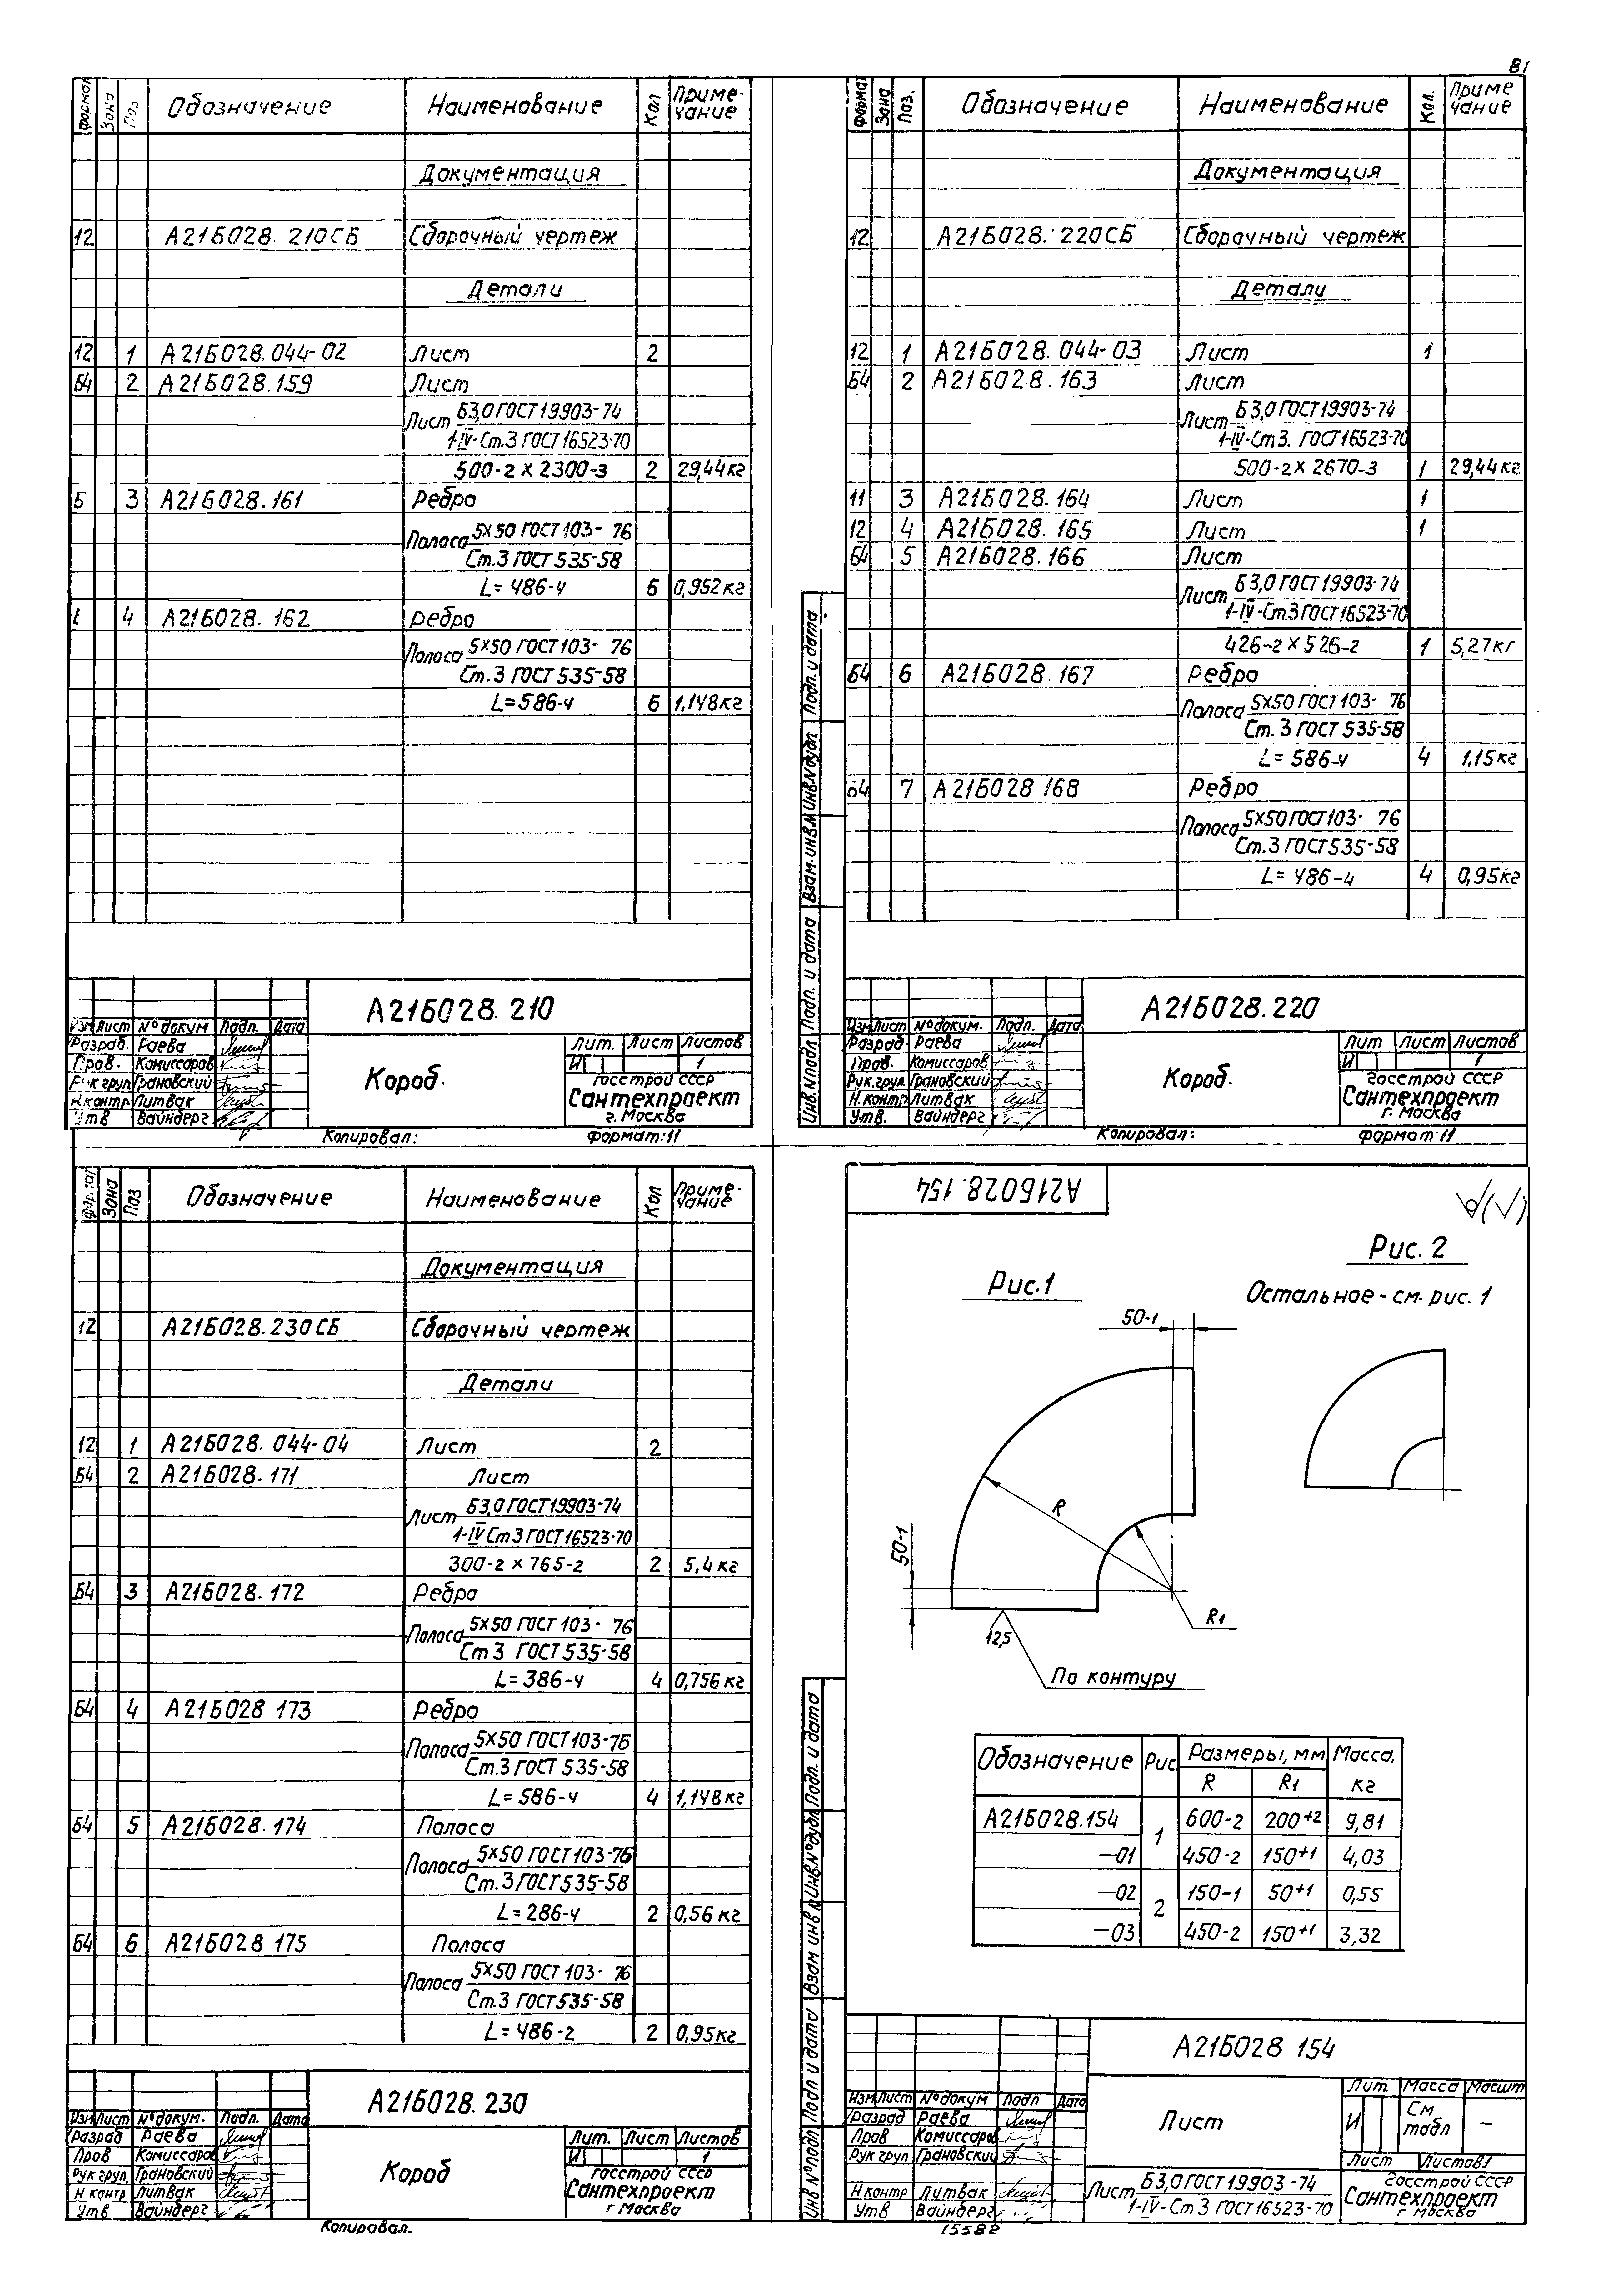 81
Формат Зона Поз Обозначение Наименование Кол Приме-чание
Документация
12 А21Б028.210СБ Сборочный чертеж
Детали
12 1 А21Б028.044-02 Лист 2
Б4 2 А21Б028.159 Лист
Лист Б3,0 ГОСТ 19903-74
1-IV-Ст.3 ГОСТ 16523-70
500-2 х 2300-3 2 29,44кг
Б 3 А21Б028.161 Ребро
Полоса 5х50 ГОСТ 103-76
Ст.3 ГОСТ 535-58
L=486-4 6 0,952кг
4 А21Б028.162 Ребро
Полоса 5х50 ГОСТ 103-76
Ст.3 ГОСТ 535-58
L=586-4 6 1,148кг
А21Б028.210
Изм Лист № докум Подп. Дата
Разраб. Раева
Пров. Комиссаров
Рук груп Грановский
Н.контр Литвак
Утв Вайндерг
Короб.
Лит. Лист Листов
И 1
Госстрой СССР
Сантехпроект
г. Москва
Копировал: Формат:11
Формат Зона Поз. Обозначение Наименование Кол. Приме чание
Документация
12 А21Б028.220СБ Сборочный чертеж
Детали
12 1 А21Б028.044-03 Лист 1
Б4 2 А21Б028.163 Лист
Лист Б3,0 ГОСТ 19903-74
1-IV-Ст3. ГОСТ 16523-70
500-2 х 2670-3 1 29,44кг
11 3 А21Б028.164 Лист 1
12 4 А21Б028.165 Лист 1
Б4 5 А21Б028.166 Лист
Лист Б3,0 ГОСТ 19903-74
1-IV-Ст3 ГОСТ 16523-70
426-2 х 526-2 1 5,27кг
Б4 6 А21Б028.167 Ребро
Полоса 5х50 ГОСТ 103-76
Ст.3 ГОСТ 535-58
L=586-4 4 1,15кг
Б4 7 А21Б028 168 Ребро
Полоса 5х50 ГОСТ 103-76
Ст.3 ГОСТ 535-58
L=486-4 4 0,95кг
Инв.№подл Подп. и дата Взам.инв.№ Инв.№дубл. Подп. и дата
А21Б028.220
Изм Лист № докум. Подп. Дата
Разраб Раева
Пров. Комиссаров
Рук.груп. Грановский
Н.контр Литвак
Утв. Вайндерг
Короб.
Лит Лист Листов
И 1
Госстрой СССР
Сантехпроект
г. Москва
Копировал: Формат:11
Формат Зона Поз Обозначение Наименование Кол Приме-чание
Документация
12 А21Б028.230СБ Сборочный чертеж
Детали
12 1 А21Б028.044-04 Лист 2
Б4 2 А21Б028.171 Лист
Лист Б3,0 ГОСТ 19903-74
1-IV Ст3 ГОСТ 16523-70
300-2 х 765-2 2 5,4кг
Б4 3 А21Б028.172 Ребро
Полоса 5х50 ГОСТ 103-76
Ст 3 ГОСТ 535-58
L=386-4 4 0,756кг
Б4 4 А21Б028 173 Ребро
Полоса 5х50 ГОСТ 103-76
Ст.3 ГОСТ 535-58
L=586-4 4 1,148кг
Б4 5 А21Б028.174 Полоса
Полоса 5х50 ГОСТ 103-76
Ст.3 ГОСТ 535-58
L=286-4 2 0,56кг
Б4 6 А21Б028 175 Полоса
Полоса 5х50 ГОСТ 103-76
Ст.3 ГОСТ 535-58
L=486-2 2 0,95кг
А21Б028.230
Изм Лист № докум. Подп. Дата
Разраб Раева
Пров Комиссаров
Рук груп. Грановский
Н контр Литвак
Утв Вайндерг
Короб
Лит. Лист Листов
И 1
Госстрой СССР
Сантехпроект
г Москва
Копировал.
А21Б028.154
Рис. 2
Рис.1
Остальное - см. рис. 1
50-1
R
50-1
R1
12,5
По контуру
Обозначение Рис. Размеры, мм Масса, кг
R R1
А21Б028.154 1 600-2 200+2 9,81
-01 450-2 150+1 4,03
-02 2 150-1 50+1 0,55
-03 450-2 150+1 3,32
Инв №подл Подп и дата Взам инв № Инв.№дубл Подп. и дата
А21Б028 154
Изм Лист № докум Подп Дата
Разраб Раева
Пров Комиссаров
Рук груп Грановский
Н контр Литвак
Утв Вайндерг
Лист
Лит. Масса Масшт
И См табл –
Лист Листов 1
Лист Б3,0 ГОСТ 19903-74
1-IV-Ст 3 ГОСТ 16523-70
Госстрой СССР
Сантехпроект
г Москва
15582